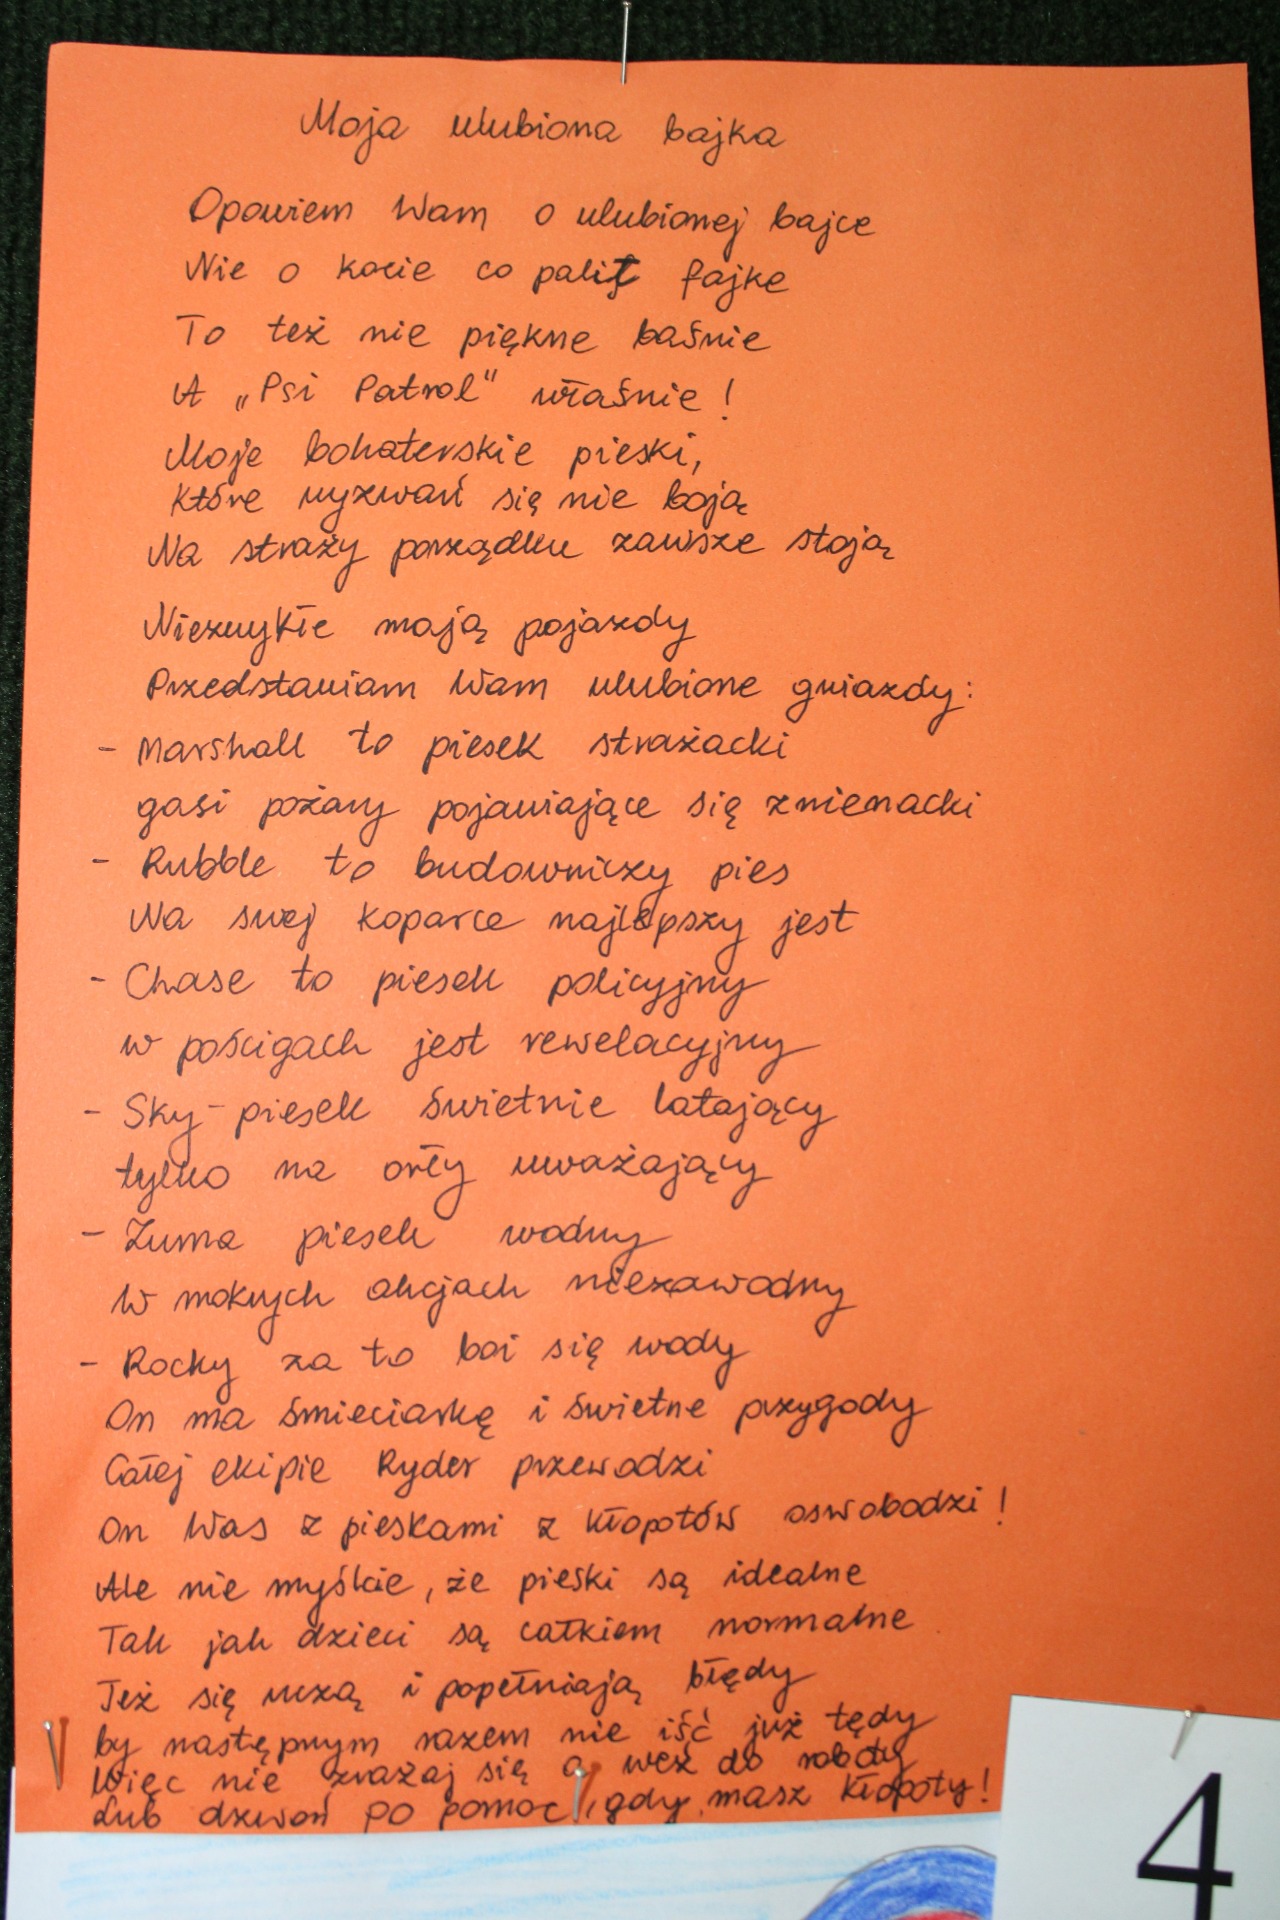 Moja ulubiona bajka
Opowiem Wam o ulubionej bajce
Nie o kocie co palił fajke
To też nie piękne baśnie
A „Psi Patrol" właśnie !
Moje bohaterskie pieski,
które wyzwań się nie boją
Na straży porządku zawsze stoją
Niezwykłe mają pojazdy
Przedstawiam Wam ulubione gwiazdy:
- Marshall to piesek strażacki
gasi pożary pojawiające się znienacki
- Rubble to budowniczy pies
Na swej koparce najlepszy jest
- Chase to piesek policyjny
w pościgach jest rewelacyjny
- Sky - piesek świetnie latający
tylko na orły uważający
- Zuma piesek wodny
W mokrych akcjach niezawodny
- Rocky za to boi się wody
On ma śmieciarkę i świetne przygody
Całej ekipie Ryder przewodzi
On Was z pieskami z kłopotów oswobodzi !
Ale nie myślcie, że pieski są idealne
Tak jak dzieci są całkiem normalne
Też się uczą i popełniają błędy
by następnym razem nie iść już tędy
Więc nie zrażaj się a weź do roboty
Lub dzwoń po pomoc, gdy masz kłopoty!
4